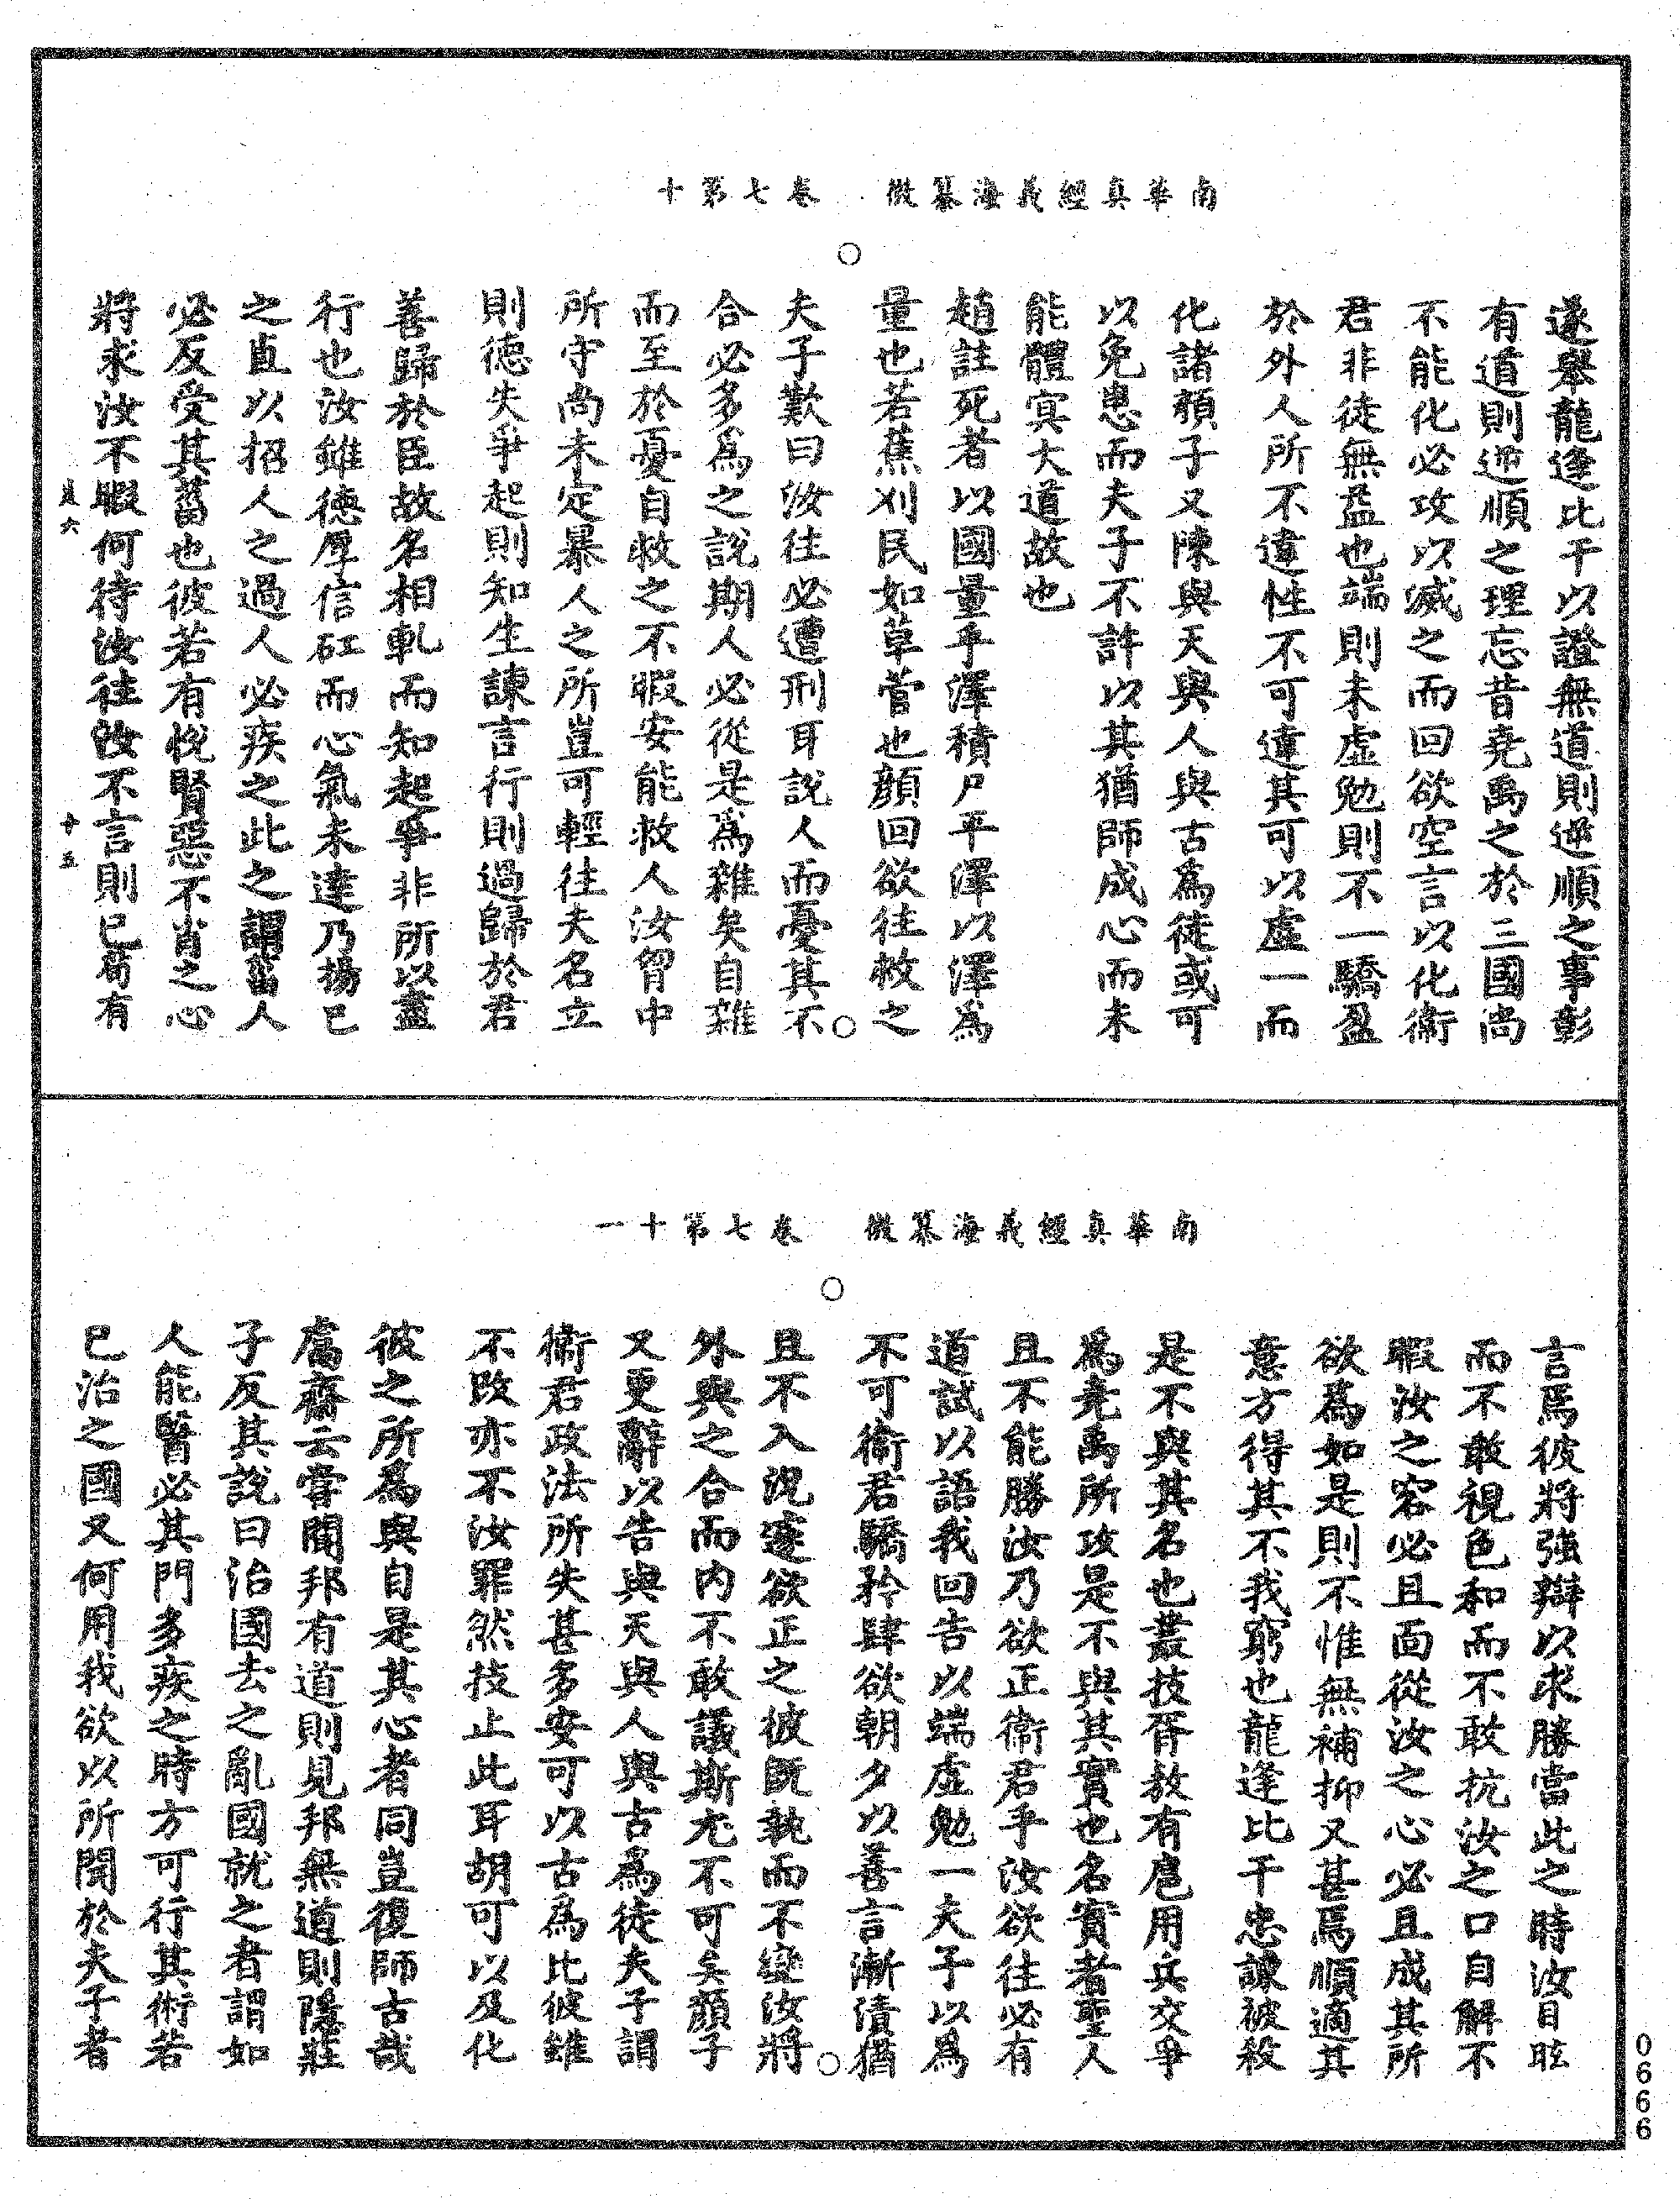 南華真經義海纂微　卷七第十
遂舉龍逢比干以證無道則逆順之事彰
有道則逆順之理忘昔堯禹之於三國尚
不能化必攻以滅之而回欲空言以化衛
君非徒無益也端則未虛勉則不一驕盈
於外人所不違性不可達其可以虛一而
化諸顏子又陳與天與人與古為徒或可
以免患而夫子不許以其猶師成心而未
能體冥大道故也
趙註死者以國量乎澤積尸平澤以澤為
量也若蕉刈民如草菅也顏回欲往救之
夫子歎曰汝往必遭刑耳說人而憂其不
合必多為之說期人必從是為雜矣自雜
而至於憂自救之不暇安能救人汝胷中
所守尚未定暴人之所豈可輕往夫名立
則德失爭起則知生諫言行則過歸於君
善歸於臣故名相軋而知起爭非所以盡
行也汝雖德厚信矼而心氣未達乃揚己
之直以招人之過人必疾之此之謂菑人
必反受其菑也彼若有悅賢惡不肖之心
將求汝不暇何待汝往汝不言則已苟有
十五
南華真經義海纂微　卷七第十一
言焉彼將強辯以求勝當此之時汝目眩
而不敢視色和而不敢抗汝之口自解不
暇汝之容必且面從汝之心必且成其所
欲為如是則不惟無補抑又甚焉順適其
意方得其不我窮也龍逢比干忠諫被殺
是不與其名也叢技胥敖有扈用兵交爭
為堯禹所攻是不與其實也名實者聖人
且不能勝汝乃欲正衛君乎汝欲往必有
道試以語我回告以端虛勉一夫子以為
不可衛君驕矜肆欲朝夕以善言漸漬猶
且不入況遽欲正之彼既執而不變汝將
外與之合而內不敢議斯尤不可矣顏子
又更辭以告與天與人與古為徒夫子謂
衛君政法所失甚多安可以古為比彼雖
不改亦不汝罪然技止此耳胡可以及化
彼之所為與自是其心者同豈復師古哉
鬳齋云嘗聞邦有道則見邦無道則隱莊
子反其說曰治國去之亂國就之者謂如
人能醫必其門多疾之時方可行其術若
已治之國又何用我欲以所聞於夫子者
0666